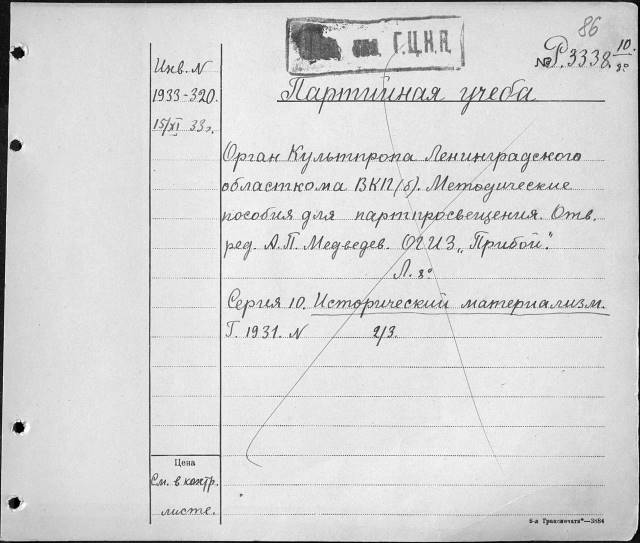 86
Г.Ц.Н.П.
№ Р.3338. 10.
8º
Инв. N
1933-320.
15/XI 33 г.
Партийная учеба
Орган Культпропа Ленинградского
областкома ВКП(б). Методические
пособия для партпросвещения. Отв.
ред. А.П. Медведев. ОГИЗ „Прибой".
Л. 8º
Серия 10. Исторический материализм.
Г. 1931. N 2/3.
Цена
См. в контр.
листе.